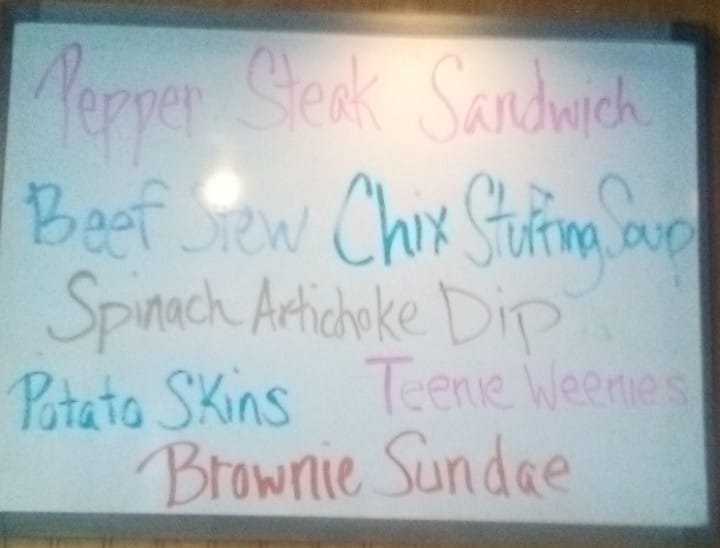 Pepper Steak Sandwich
Beef Stew Chix Stuffing Soup
Spinach Artichoke Dip
Potato Skins Teenie Weenies
Brownie Sundae